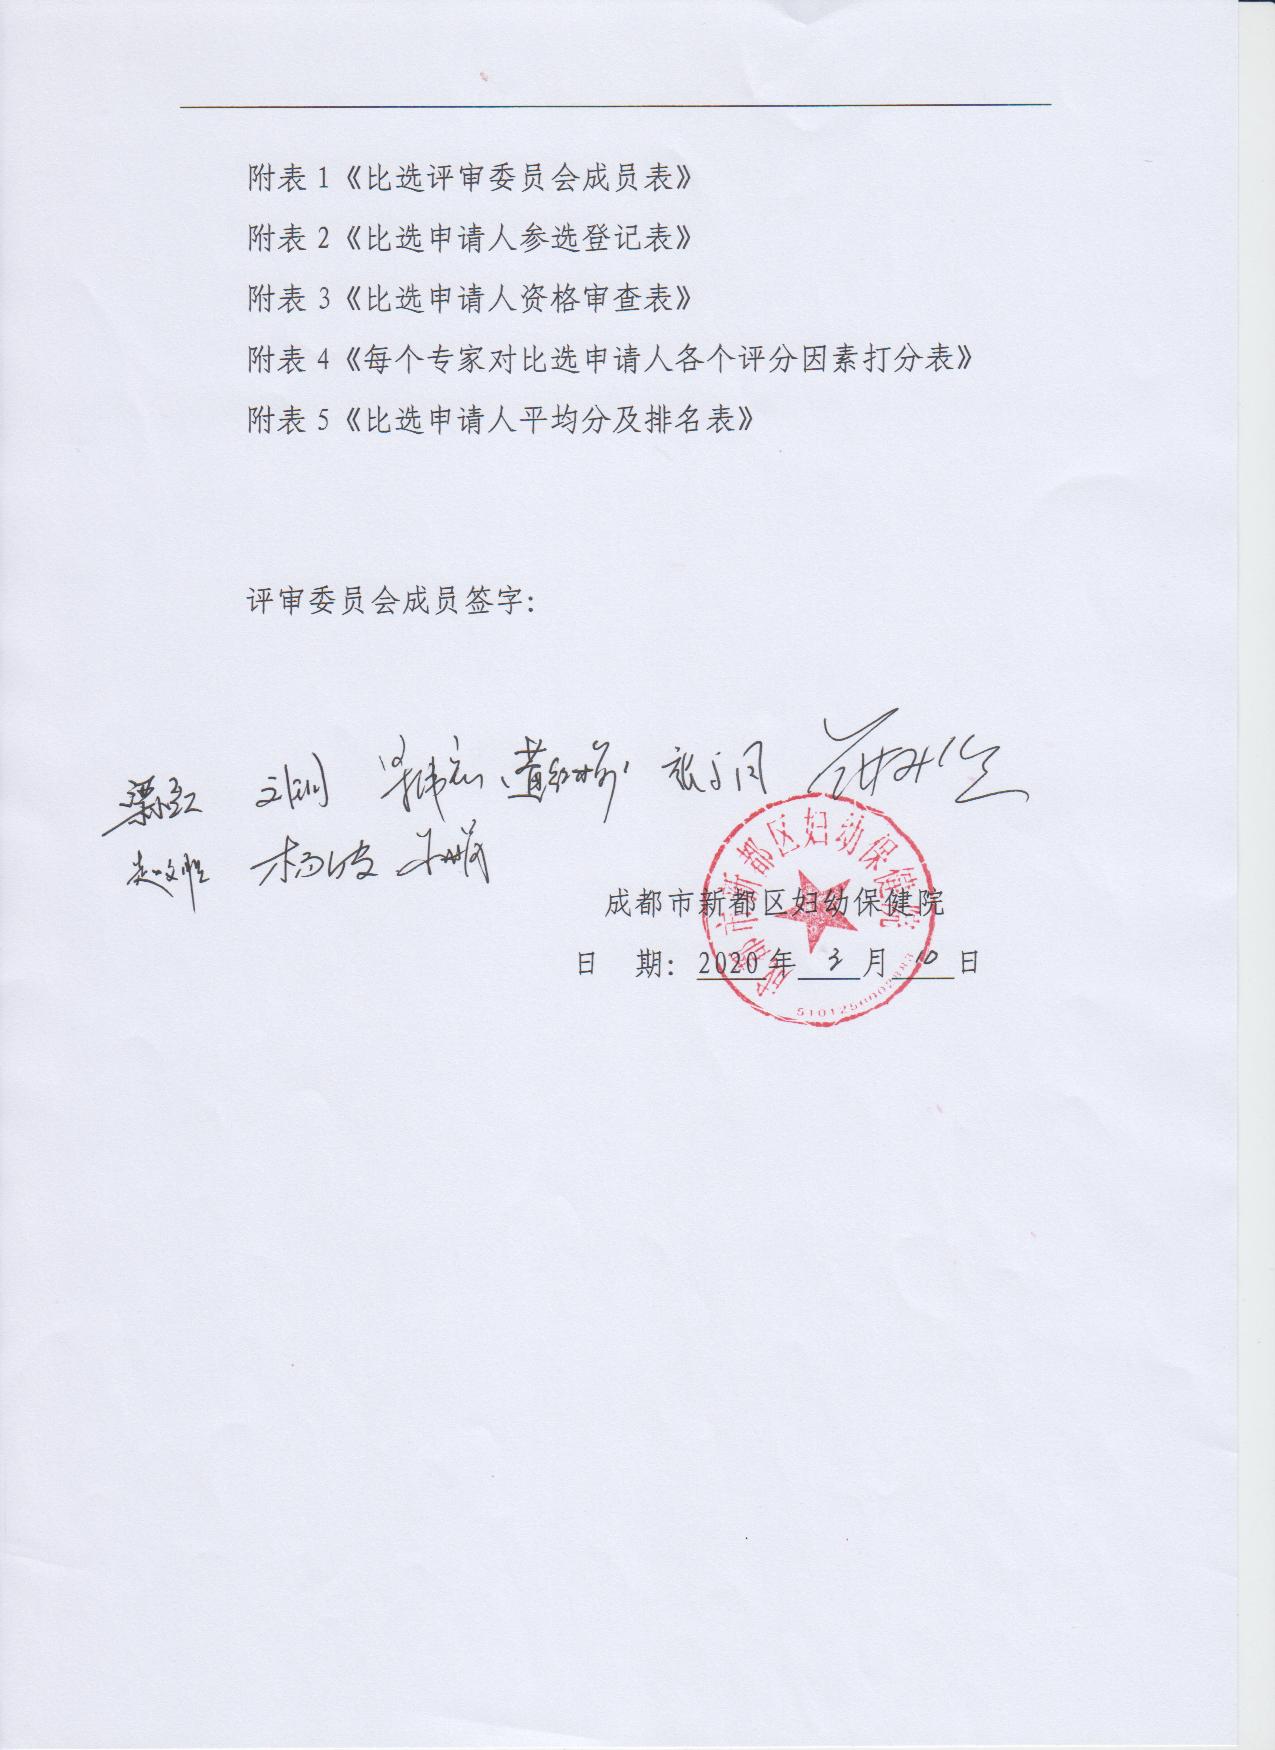 附表 1《比选评审委员会成员表》
附表 2《比选申请人参选登记表》
附表 3《比选申请人资格审查表》
附表 4《每个专家对比选申请人各个评分因素打分表》
附表 5《比选申请人平均分及排名表》
评审委员会成员签字：
杨波
成都市新都区妇幼保健院
成都市新都区妇幼保健院
日 期：2020 年 3 月 10 日